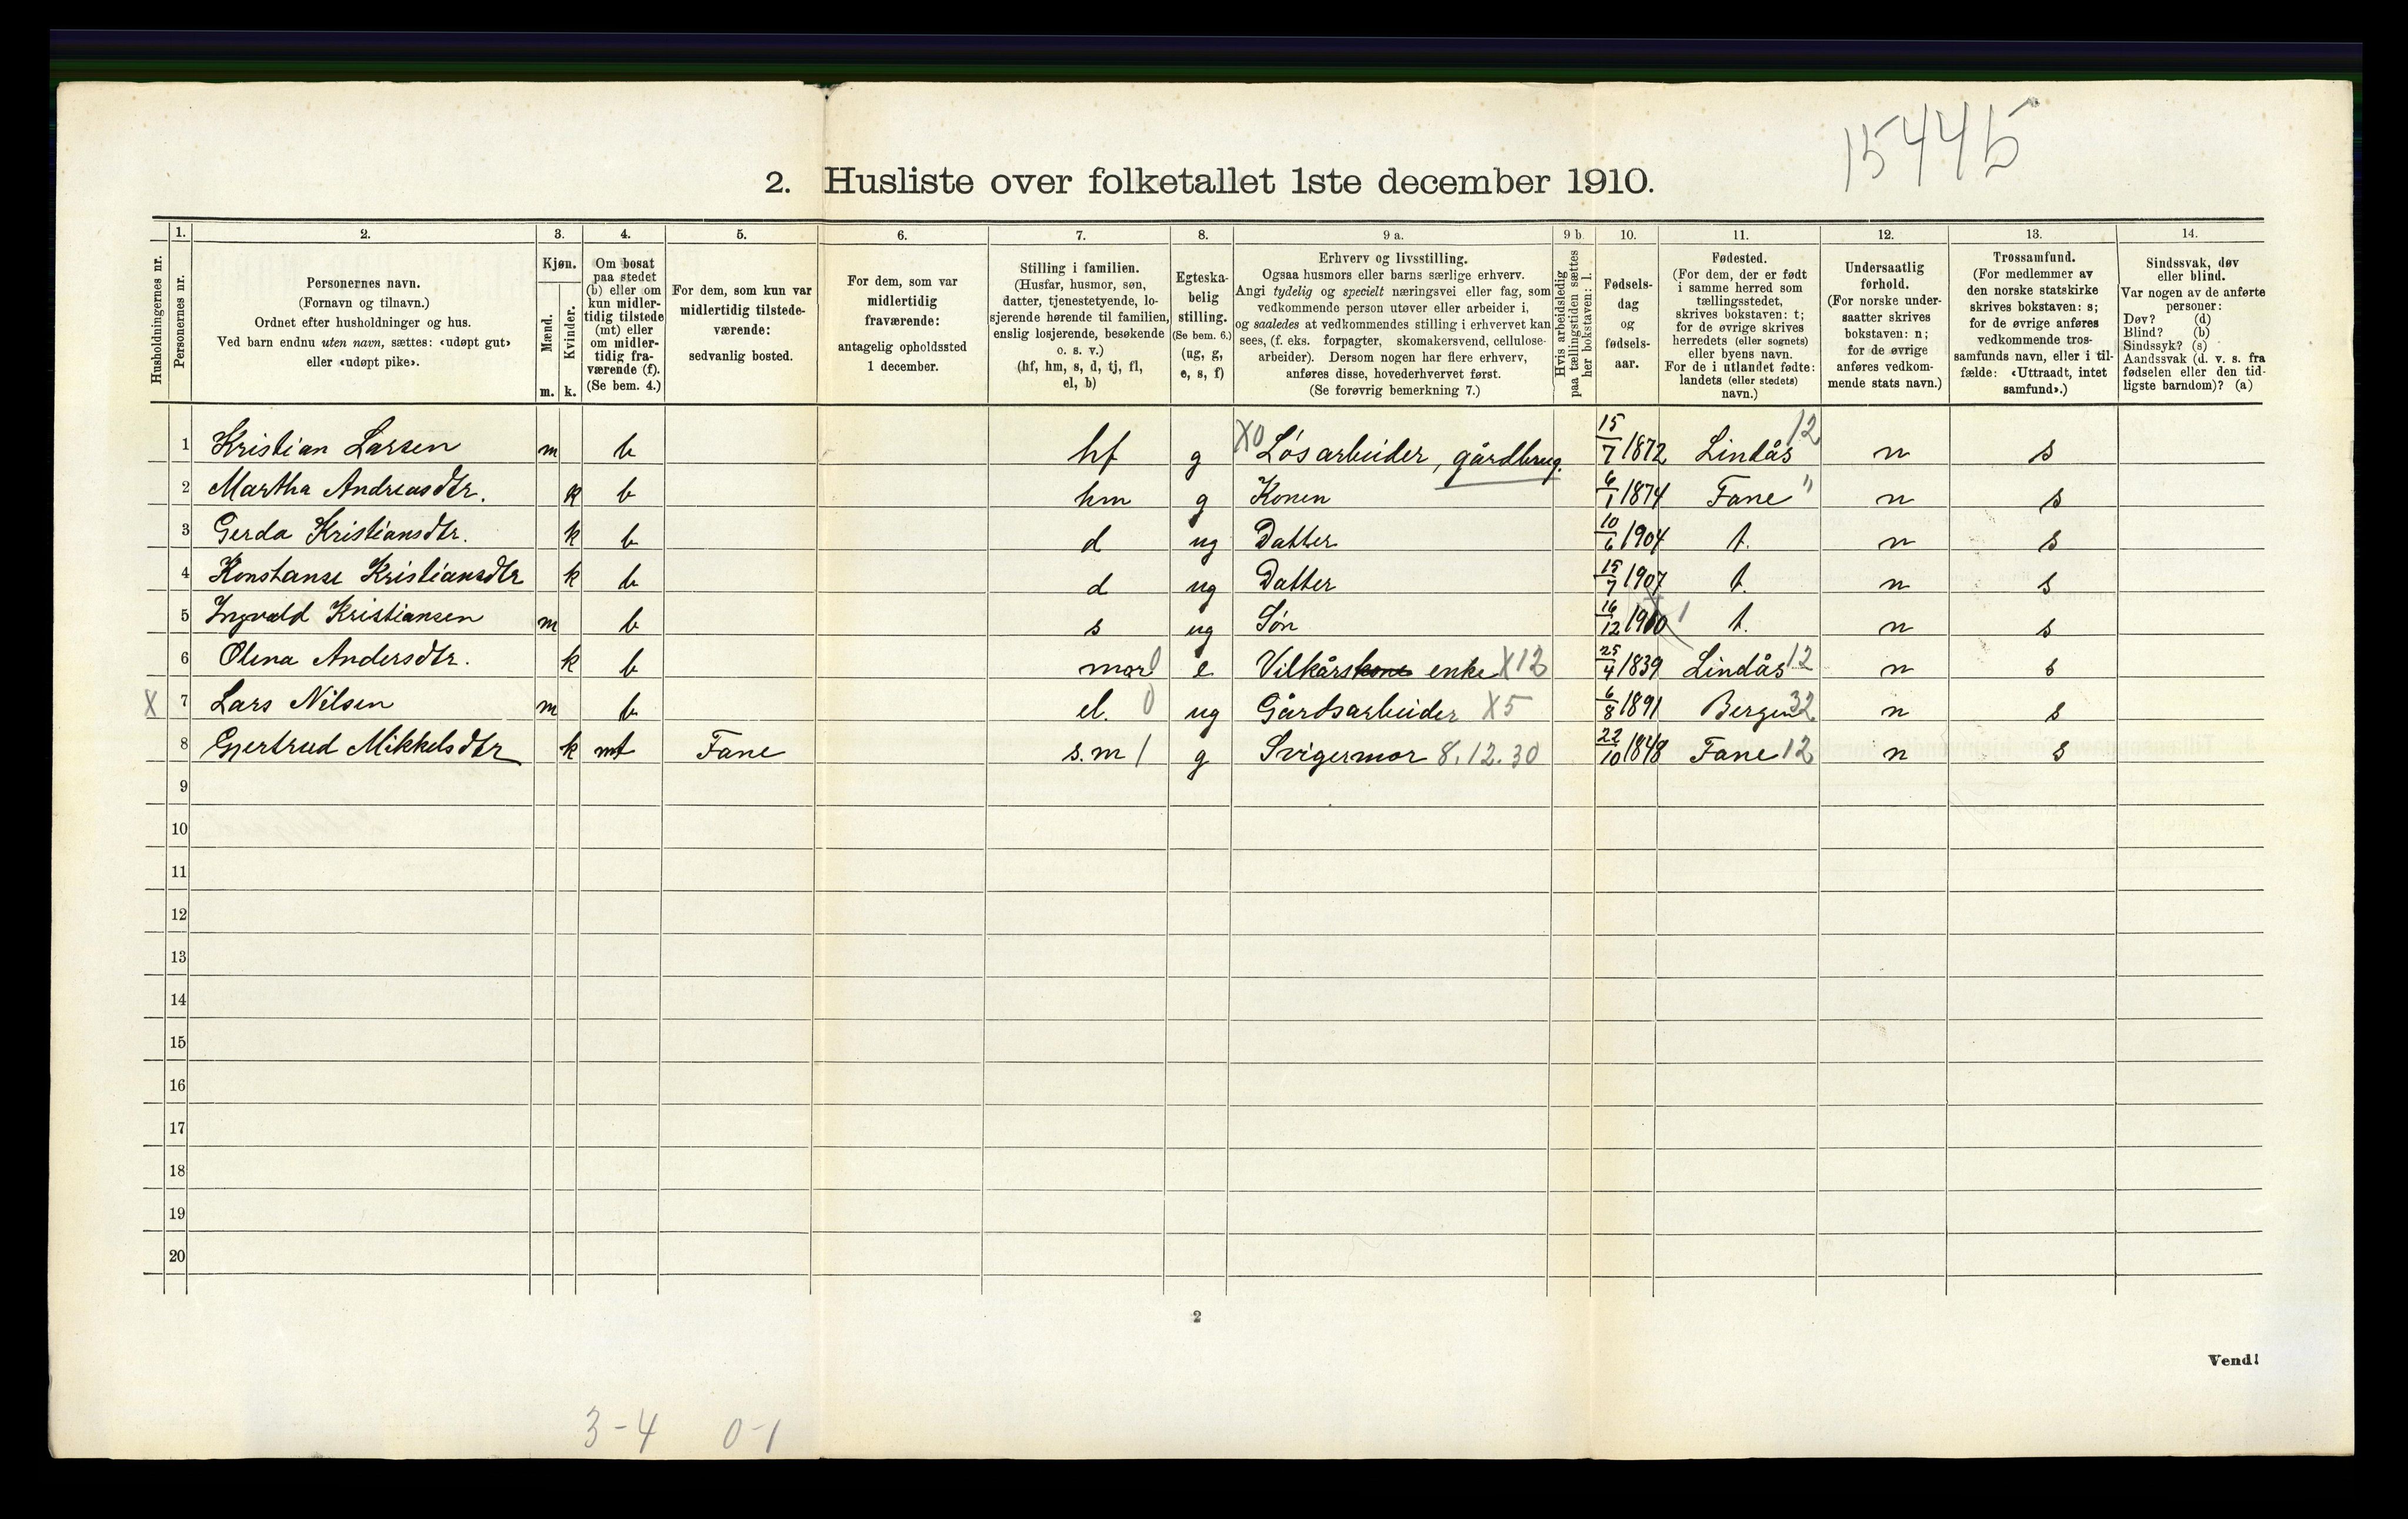 15445
2. Husliste over folketallet 1ste december 1910.
Husholdningernes nr.
1. Personernes nr.
2. Personernes navn.
(Fornavn og tilnavn.)
Ordnet efter husholdninger og hus.
Ved barn endnu uten navn, sættes: «udøpt gut»
eller «udøpt pike».
3. Kjøn.
Mænd. m.
Kvinder. k.
4. Om bosat
paa stedet
(b) eller om
kun midler-
tidig tilstede
(mt) eller
om midler-
tidig fra-
værende (f).
(Se bem. 4.)
5. For dem, som kun var
midlertidig tilstede-
værende:
sedvanlig bosted.
6. For dem, som var
midlertidig
fraværende:
antagelig opholdssted
1 december.
7. Stilling i familien.
(Husfar, husmor, søn,
datter, tjenestetyende, lo-
sjerende hørende til familien,
enslig losjerende, besøkende
o. s. v.)
(hf, hm, s, d, tj, fl,
el, b)
8. Egteska-
belig
stilling.
(Se bem. 6.)
(ug, g,
e, s, f)
9 a. Erhverv og livsstilling.
Ogsaa husmors eller barns særlige erhverv.
Angi tydelig og specielt næringsvei eller fag, som
vedkommende person utøver eller arbeider i,
og saaledes at vedkommendes stilling i erhvervet kan
sees, (f. eks. forpagter, skomakersvend, cellulose-
arbeider). Dersom nogen har flere erhverv,
anføres disse, hovederhvervet først.
(Se forøvrig bemerkning 7.)
9 b. Hvis arbeidsledig
paa tællingstiden sættes
her bokstaven: l.
10. Fødsels-
dag
og
fødsels-
aar.
11. Fødested.
(For dem, der er født
i samme herred som
tællingsstedet,
skrives bokstaven: t;
for de øvrige skrives
herredets (eller sognets)
eller byens navn.
For de i utlandet fødte:
landets (eller stedets)
navn.)
12. Undersaatlig
forhold.
(For norske under-
saatter skrives
bokstaven: n;
for de øvrige
anføres vedkom-
mende stats navn.)
13. Trossamfund.
(For medlemmer av
den norske statskirke
skrives bokstaven: s;
for de øvrige anføres
vedkommende tros-
samfunds navn, eller i til-
fælde: «Uttraadt, intet
samfund».)
14. Sindssvak, døv
eller blind.
Var nogen av de anførte
personer:
Døv? (d)
Blind? (b)
Sindssyk? (s)
Aandssvak (d. v. s. fra
fødselen eller den tid-
ligste barndom)? (a)
1 Kristian Larsen m b hf g X0 Løsarbeider, gårdbrug. 15/7 1872 Lindås 12 n s
2 Martha Andreasdtr. k b hm g Konen 6/1 1874 Fane " n s
3 Gerda Kristiansdtr. k b d ug Datter 10/6 1904 t. n s
4 Konstanse Kristiansdtr k b d ug Datter 15/7 1907 t. n s
5 Ingvald Kristiansen m b s ug Søn 16/12 1900 1 t. n s
6 Olena Andersdtr. k b mor 0 e Vilkårskone enke X12 25/4 1839 Lindås 12 n s
X 7 Lars Nilsen m b el. 0 ug Gårdsarbeider X5 6/8 1891 Bergen 32 n s
8 Gjertrud Mikkelsdtr k mt Fane s.m 1 g Svigermor 8.12.30 22/10 1848 Fane 12 n s
9
10
11
12
13
14
15
16
17
18
19
20
2
Vend!
3-4 0-1